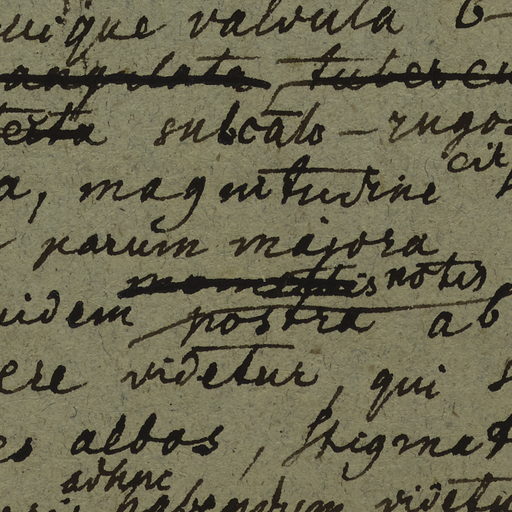 uique valvula 6-
angulata, tubercu
testa subcalo-rugos
a, magnitudine cit
parum majora
notis
uidem nostra ab
ere videtur, qui s
es albos, stigmat
adhuc
habendum videtu